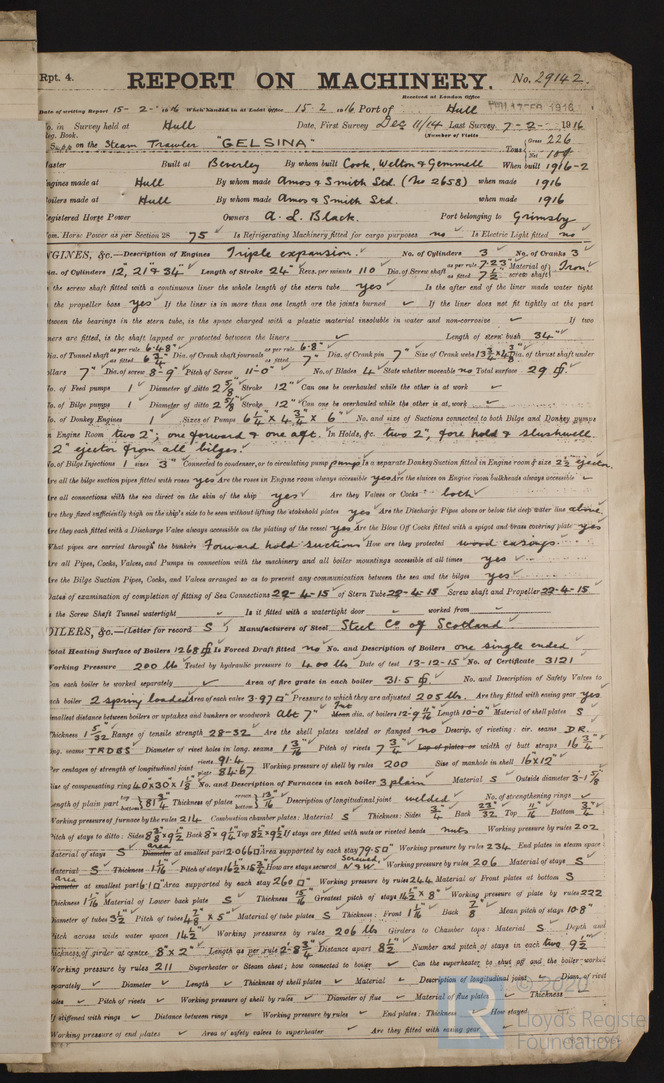 Rpt. 4.
REPORT ON MACHINERY.
No. 29142.
Received at London Office
Date of writing Report 15-2-1916 When handed in at Local Office 15.2.1916 Port of Hull
No. in Survey held at Hull Date, First Survey Dec 11/14 Last Survey 7-2-1916
Reg. Book. (Number of Visits
on the Steam Trawler "GELSINA" Tons Gross 226
Net 104
Master Built at Beverley By whom built Cook, Welton & Gemmell When built 1916-2
Engines made at Hull By whom made Amos & Smith Ltd. (No 2658) when made 1916
Boilers made at Hull By whom made Amos & Smith Ltd. when made 1916
Registered Horse Power Owners A. L. Black. Port belonging to Grimsby
Nom. Horse Power as per Section 28 75 Is Refrigerating Machinery fitted for cargo purposes no Is Electric Light fitted no
ENGINES, &c.—Description of Engines Triple expansion. No. of Cylinders 3 No. of Cranks 3
Dia. of Cylinders 12, 21 & 34" Length of Stroke 24" Revs. per minute 110 Dia. of Screw shaft as per rule 7.23" as fitted 7½" Material of screw shaft Iron.
Is the screw shaft fitted with a continuous liner the whole length of the stern tube yes Is the after end of the liner made water tight
in the propeller boss yes If the liner is in more than one length are the joints burned ✓ If the liner does not fit tightly at the part
between the bearings in the stern tube, is the space charged with a plastic material insoluble in water and non-corrosive ✓ If two
liners are fitted, is the shaft lapped or protected between the liners ✓ Length of stern bush 34"
Dia. of Tunnel shaft as per rule 6.48" as fitted 6¾" Dia. of Crank shaft journals as per rule 6.8" as fitted 7" Dia. of Crank pin 7" Size of Crank webs 13½"x4⅜" Dia. of thrust shaft under
collars 7" Dia. of screw 8-9" Pitch of Screw 11-0" No. of Blades 4 State whether moveable no Total surface 29
No. of Feed pumps 1 Diameter of ditto 2⅝" Stroke 12" Can one be overhauled while the other is at work ✓
No. of Bilge pumps 1 Diameter of ditto 2⅝" Stroke 12" Can one be overhauled while the other is at work ✓
No. of Donkey Engines 1 Sizes of Pumps 6¼" x 4¾" x 6" No. and size of Suctions connected to both Bilge and Donkey pumps
In Engine Room two 2"; one forward & one aft. In Holds, &c. two 2", fore hold & slushwell
2" ejector from all bilges.
No. of Bilge Injections 1 sizes 3" Connected to condenser, or to circulating pump pump Is a separate Donkey Suction fitted in Engine room & size 2½" ejector
Are all the bilge suction pipes fitted with roses yes Are the roses in Engine room always accessible yes Are the sluices on Engine room bulkheads always accessible ✓
Are all connections with the sea direct on the skin of the ship yes Are they Valves or Cocks both
Are they fixed sufficiently high on the ship's side to be seen without lifting the stokehold plates yes Are the Discharge Pipes above or below the deep water line above
Are they each fitted with a Discharge Valve always accessible on the plating of the vessel yes Are the Blow Off Cocks fitted with a spigot and brass covering plate yes
What pipes are carried through the bunkers Forward hold suctions How are they protected wood casings.
Are all Pipes, Cocks, Valves, and Pumps in connection with the machinery and all boiler mountings accessible at all times yes
Are the Bilge Suction Pipes, Cocks, and Valves arranged so as to prevent any communication between the sea and the bilges yes
Dates of examination of completion of fitting of Sea Connections 22-4-15 of Stern Tube 22-4-15 Screw shaft and Propeller 22-4-15
Is the Screw Shaft Tunnel watertight ✓ Is it fitted with a watertight door ✓ worked from ✓
BOILERS, &c.—(Letter for record S) Manufacturers of Steel Steel Co. of Scotland
Total Heating Surface of Boilers 1268 Is Forced Draft fitted no No. and Description of Boilers one single ended
Working Pressure 200 lbs Tested by hydraulic pressure to 400 lbs Date of test 13-12-15 No. of Certificate 3121
Can each boiler be worked separately ✓ Area of fire grate in each boiler 31.5 No. and Description of Safety Valves to
each boiler 2 spring loaded Area of each valve 3.97 Pressure to which they are adjusted 205 lbs. Are they fitted with easing gear yes
Smallest distance between boilers or uptakes and bunkers or woodwork abt 7" Mean dia. of boilers 12-9 11/16" Length 10-0" Material of shell plates S
Thickness 1 5/32" Range of tensile strength 28-32 Are the shell plates welded or flanged no Descrip. of riveting: cir. seams D.R.
long. seams T.R.D.B.S Diameter of rivet holes in long. seams 1 3/16" Pitch of rivets 7¾" Lap of plates or width of butt straps 16¾"
Per centages of strength of longitudinal joint rivets 91.4 plate 84.67 Working pressure of shell by rules 200 Size of manhole in shell 16"x12"
Size of compensating ring 40x30x1⅛" No. and Description of Furnaces in each boiler 3 plain Material S Outside diameter 3-1⅝"
Length of plain part 81¾" Thickness of plates 13/16" Description of longitudinal joint welded No. of strengthening rings ✓
Working pressure of furnace by the rules 214 Combustion chamber plates: Material S Thickness: Sides ¾" Back 23/32" Top 11/16" Bottom ¾"
Pitch of stays to ditto: Sides 8⅜"x9½" Back 8"x9¼" Top 8½"x9½" If stays are fitted with nuts or riveted heads nuts Working pressure by rules 202
Material of stays S area at smallest part 2.066 Area supported by each stay 79.5 Working pressure by rules 234 End plates in steam space:
Material S Thickness 1 1/16" Pitch of stays 16½"x15¾" How are stays secured Screwed, N & W. Working pressure by rules 206 Material of stays S
area at smallest part 6.1 Area supported by each stay 260 Working pressure by rules 244 Material of Front plates at bottom S
Thickness 1 1/16" Material of Lower back plate S Thickness 15/16" Greatest pitch of stays 14½" x 8" Working pressure of plate by rules 222
Diameter of tubes 3½" Pitch of tubes 4⅞" x 5" Material of tube plates S Thickness: Front 1 1/16" Back ⅞" Mean pitch of stays 10.8"
Pitch across wide water spaces 14½" Working pressures by rules 206 lbs Girders to Chamber tops: Material S Depth and
thickness of girder at centre 8" x 2" Length as per rule 2-8¾" Distance apart 8½" Number and pitch of stays in each two 9½"
Working pressure by rules 211 Superheater or Steam chest; how connected to boiler ✓ Can the superheater be shut off and the boiler worked
separately ✓ Diameter ✓ Length ✓ Thickness of shell plates ✓ Material ✓ Description of longitudinal joint ✓ Diam. of rivet
holes ✓ Pitch of rivets ✓ Working pressure of shell by rules ✓ Diameter of flue ✓ Material of flue plates ✓ Thickness
If stiffened with rings ✓ Distance between rings ✓ Working pressure by rules ✓ End plates: Thickness How stayed
Working pressure of end plates ✓ Area of safety valves to superheater ✓ Are they fitted with easing gear ✓
© 2020
Lloyd's Register
Foundation